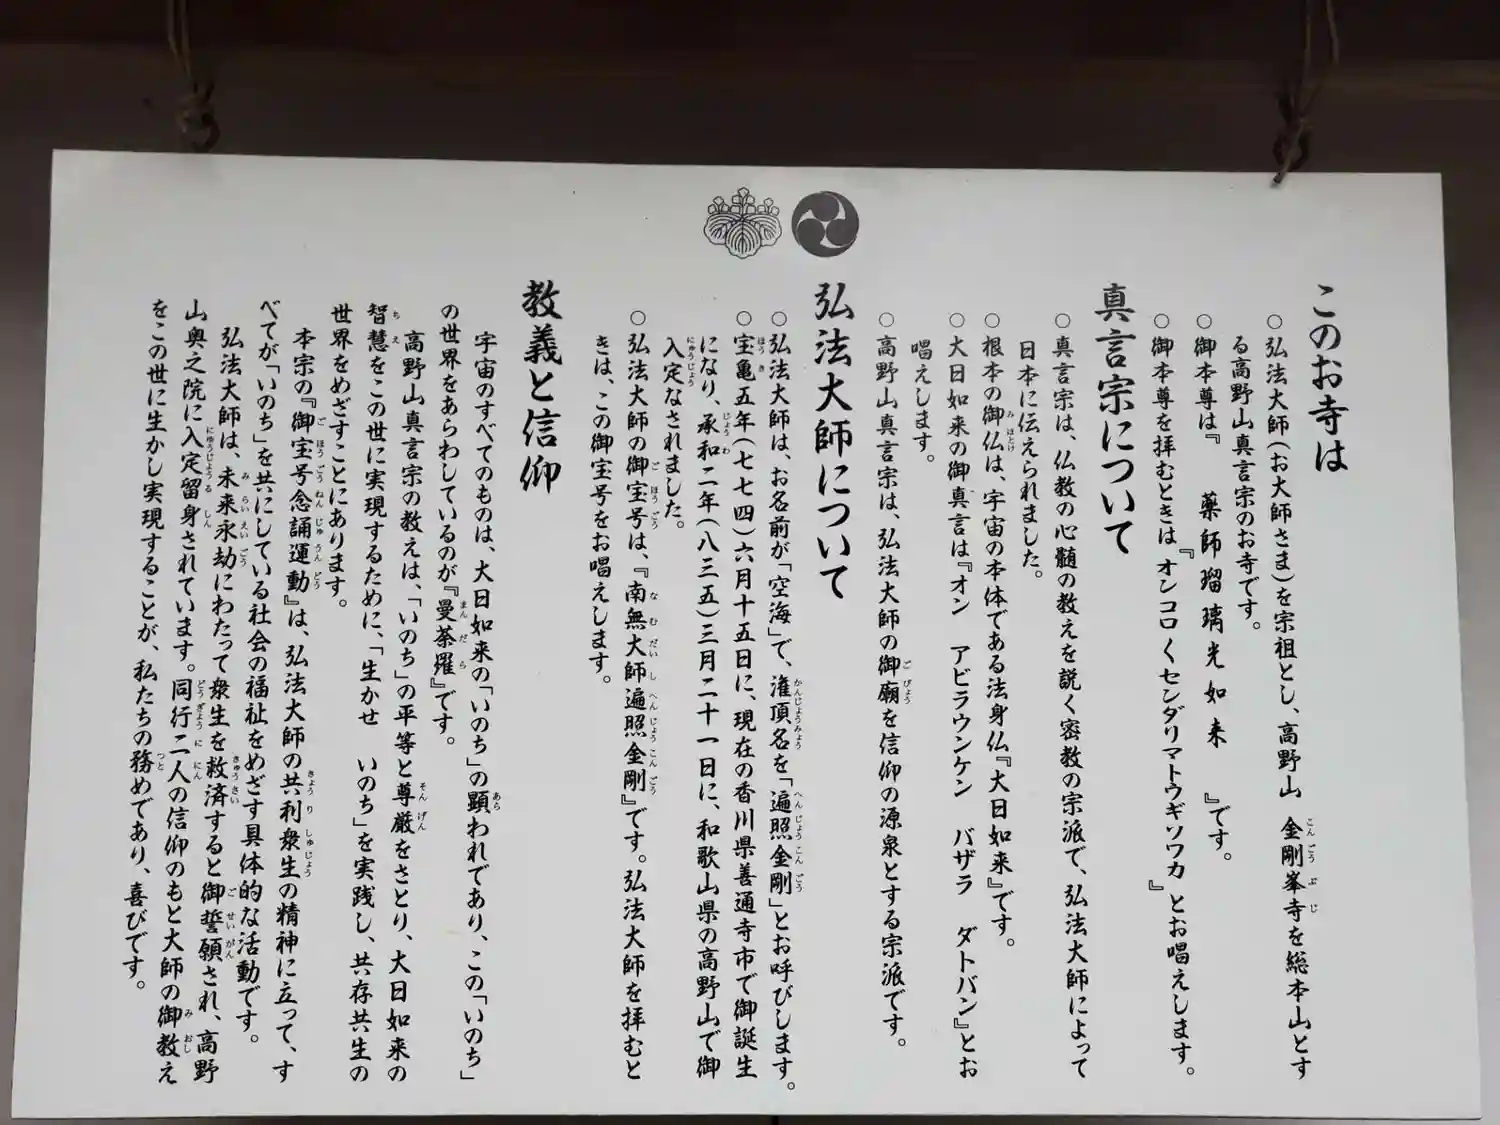 このお寺は
○弘法大師(お大師さま)を宗祖とし、高野山 金剛峯寺を総本山とす
る高野山真言宗のお寺です。
○御本尊は『 薬師瑠璃光如来 』です。
○御本尊を拝むときは『オンコロ〱センダリマトウギソワカ』とお唱えします。
真言宗について
○真言宗は、仏教の心髄の教えを説く密教の宗派で、弘法大師によって
日本に伝えられました。
○根本の御仏は、宇宙の本体である法身仏『大日如来』です。
○大日如来の御真言は『オン アビラウンケン バザラ ダトバン』とお
唱えします。
○高野山真言宗は、弘法大師の御廟を信仰の源泉とする宗派です。
弘法大師について
○弘法大師は、お名前が「空海」で、潅頂名を「遍照金剛」とお呼びします。
○宝亀五年(七七四)六月十五日に、現在の香川県善通寺市で御誕生
になり、承和二年(八三五)三月二十一日に、和歌山県の高野山で御
入定なされました。
○弘法大師の御宝号は、『南無大師遍照金剛』です。弘法大師を拝むと
きは、この御宝号をお唱えします。
教義と信仰
宇宙のすべてのものは、大日如来の「いのち」の顕われであり、この「いのち」
の世界をあらわしているのが『曼荼羅』です。
高野山真言宗の教えは、「いのち」の平等と尊厳をさとり、大日如来の
智慧をこの世に実現するために、「生かせ いのち」を実践し、共存共生の
世界をめざすことにあります。
本宗の『御宝号念誦運動』は、弘法大師の共利衆生の精神に立って、す
べてが「いのち」を共にしている社会の福祉をめざす具体的な活動です。
弘法大師は、未来永劫にわたって衆生を救済すると御誓願され、高野
山奥之院に入定留身されています。同行二人の信仰のもと大師の御教え
をこの世に生かし実現することが、私たちの務めであり、喜びです。